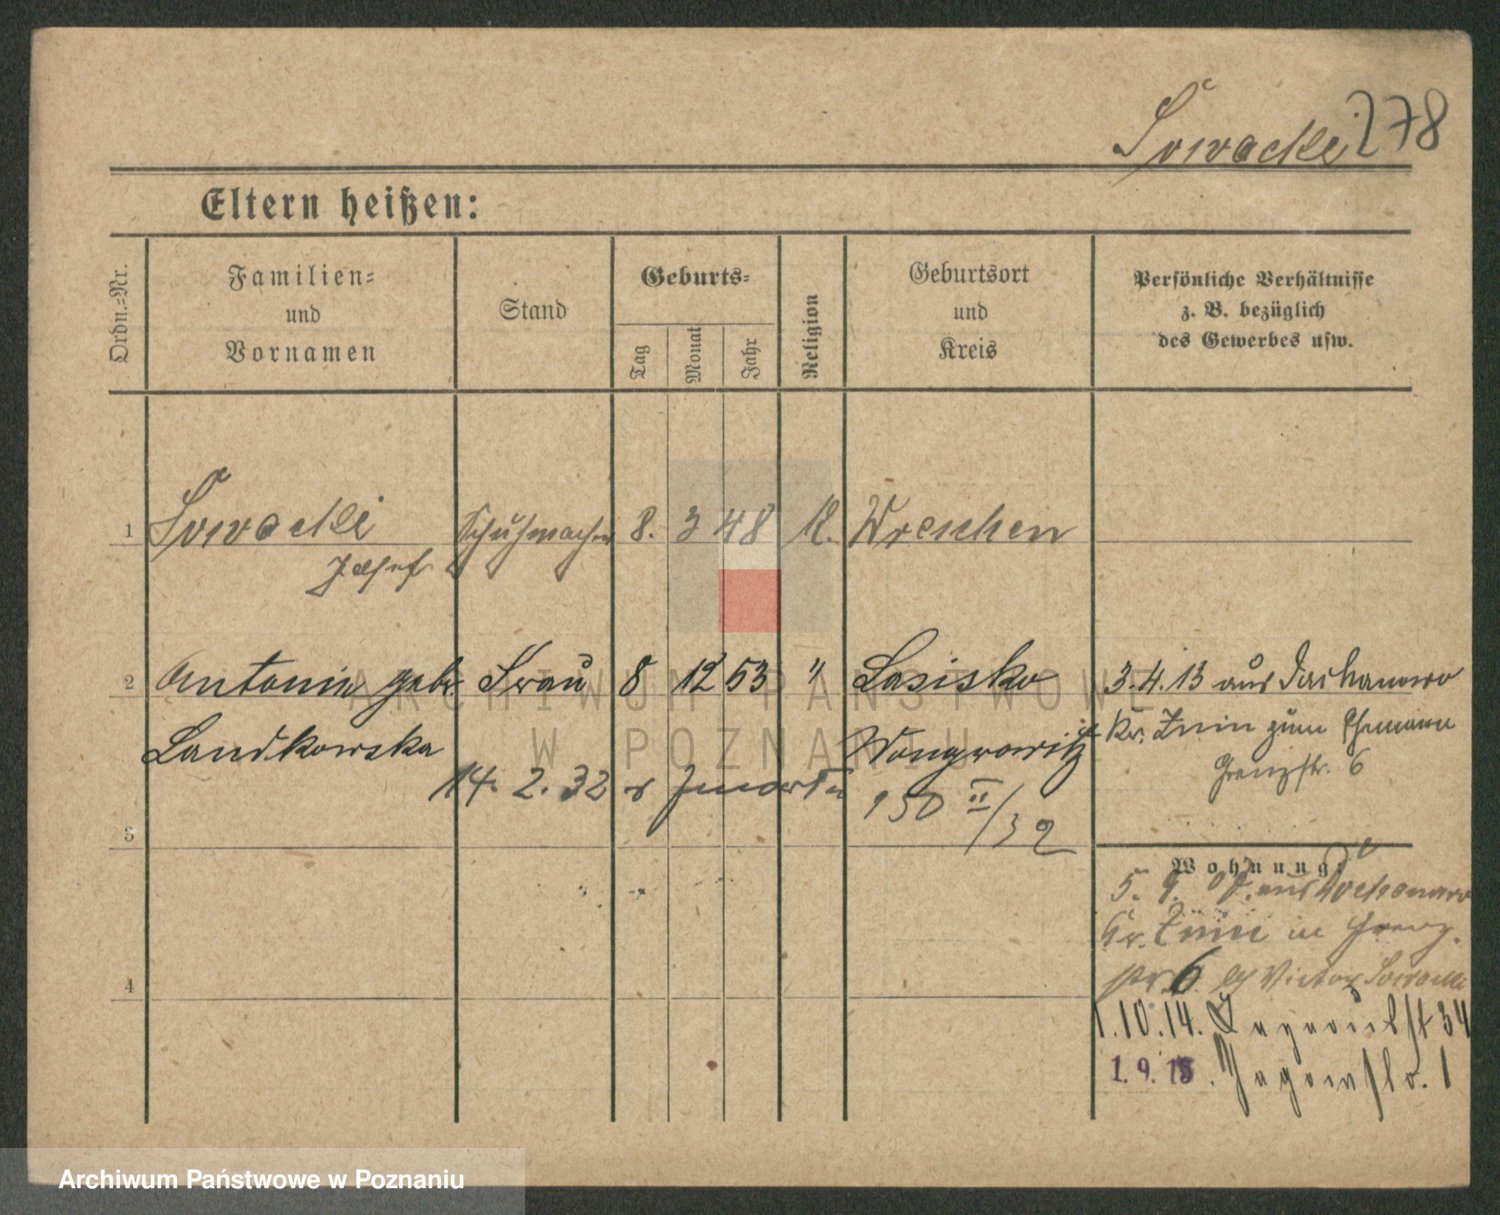 Sowacki 278
Eltern heißen:
Ordn.-Nr.
Familien-
und
Vornamen
Stand
Geburts-
Tag
Monat
Jahr
Religion
Geburtsort
und
Kreis
Persönliche Verhältnisse
z. B. bezüglich
des Gewerbes usw.
1 Sowacki Schuhmacher 8. 3 48 K. Wreschen
Josef
2 Antonie geb. Frau 8 12 53 " Lasisko 3.4.13 aus
Landkowska Wongrowitz Kr. Znin zum Ehemann
Grenzstr. 6
14. 2. 32
150 II/32
3
Wohnung
5. 9. aus
Kr. Znin in Grenz
6 Victor Sowacki
4
1.10.14. 34
1.9.15. 1
ARCHIWUM PAŃSTWOWE
W POZNANIU
Archiwum Państwowe w Poznaniu